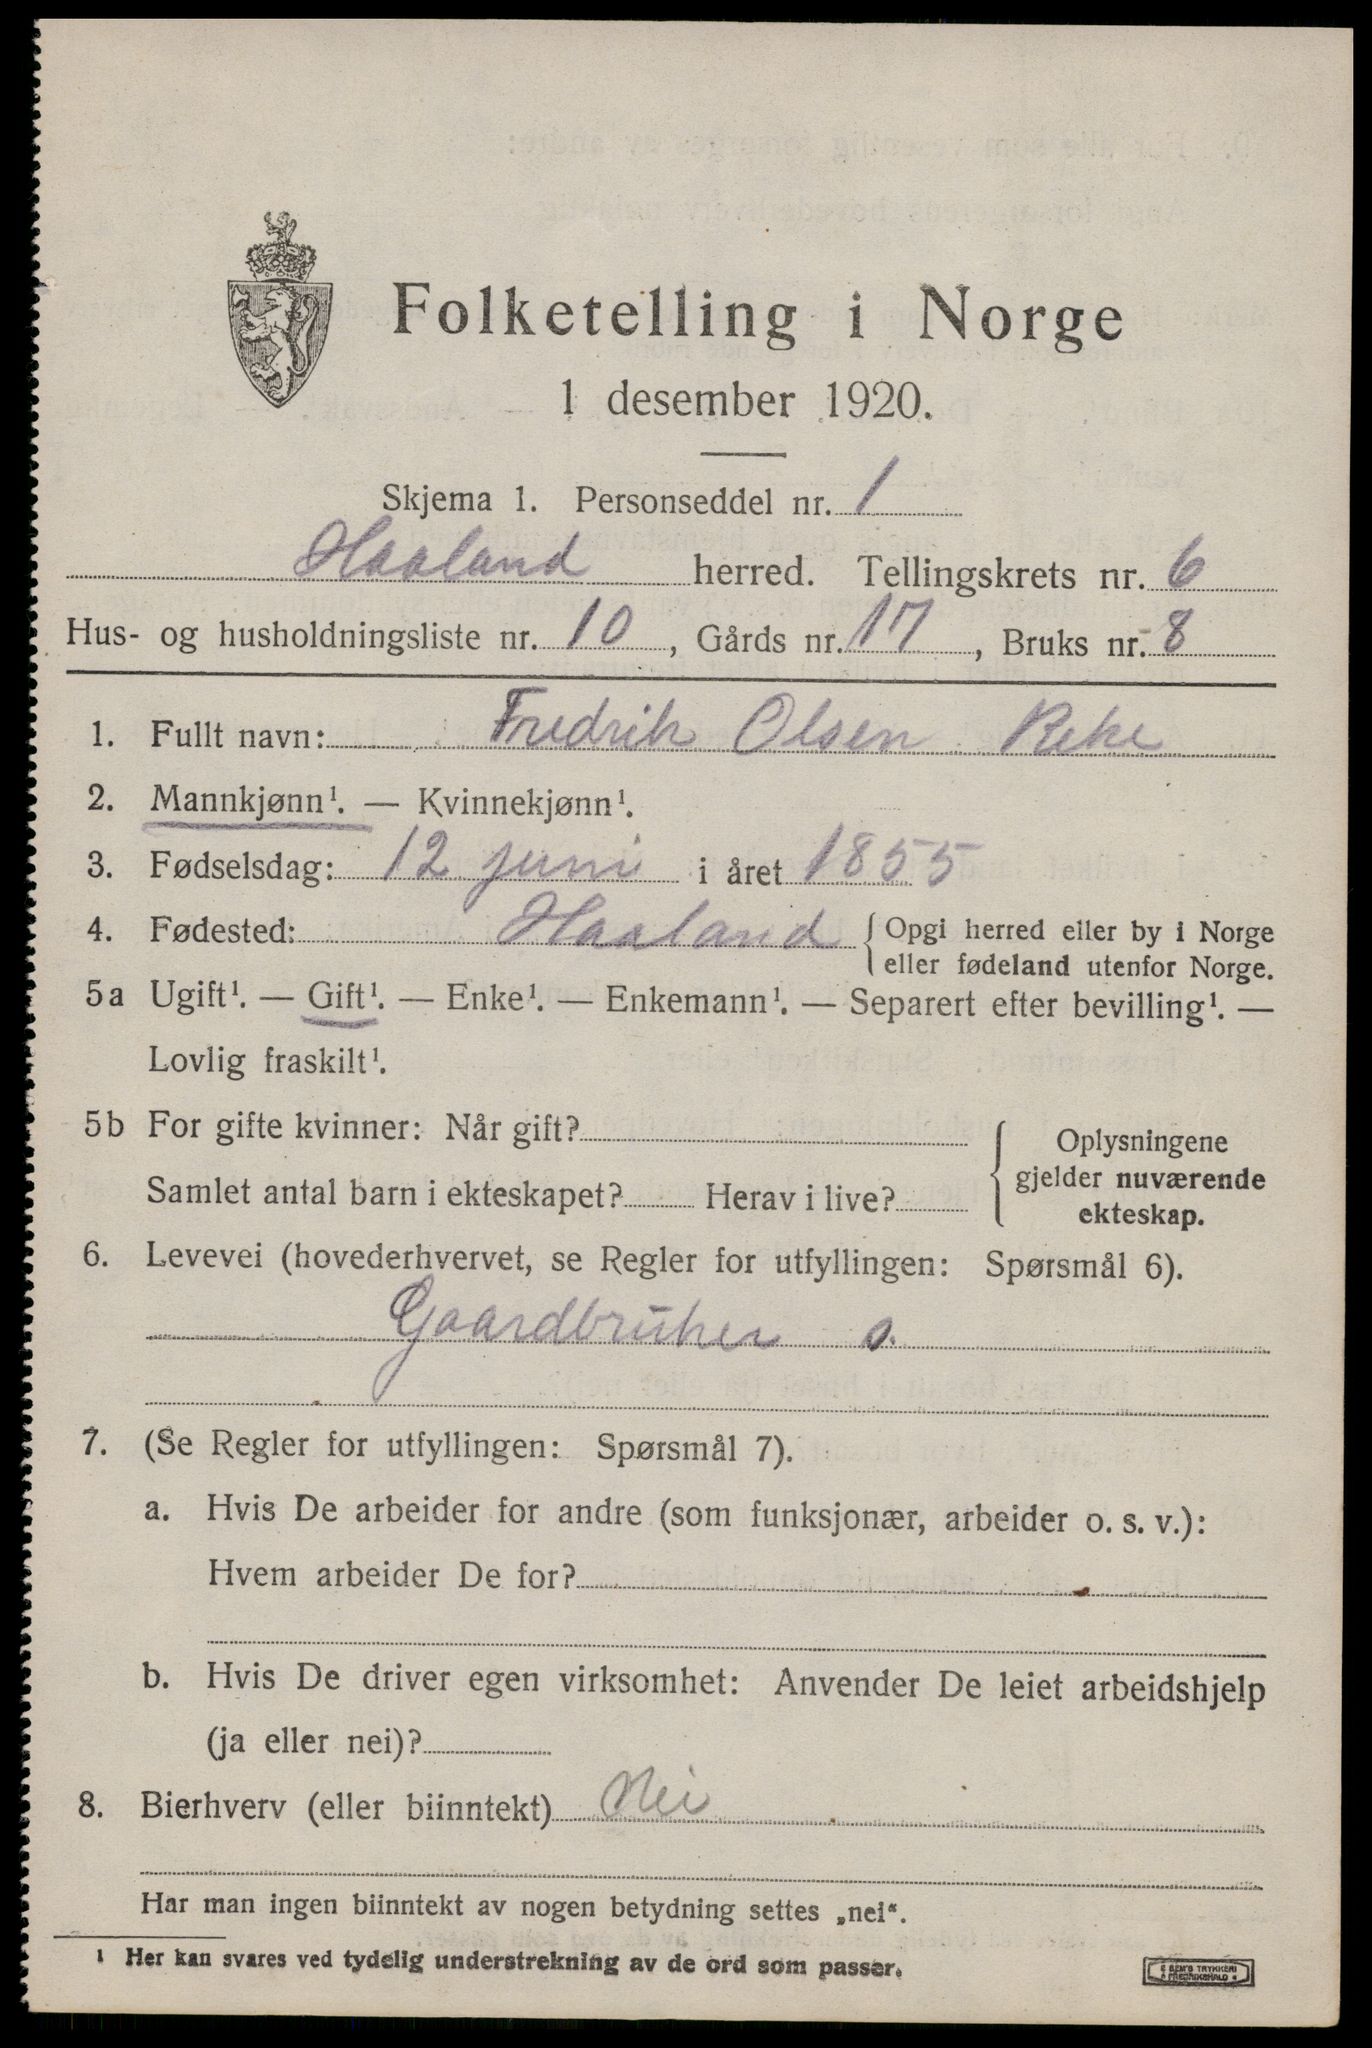 Folketelling i Norge
1 desember 1920.
Skjema 1. Personseddel nr. 1
Haaland herred. Tellingskrets nr. 6
Hus- og husholdningsliste nr. 10, Gårds nr. 17, Bruks nr. 8
1. Fullt navn: Fredrik Olsen Reke
2. Mannkjønn¹. — Kvinnekjønn¹.
3. Fødselsdag: 12 juni i året 1855
4. Fødested: Haaland { Opgi herred eller by i Norge
eller fødeland utenfor Norge.
5a Ugift¹. — Gift¹. — Enke¹. — Enkemann¹. — Separert efter bevilling¹. —
Lovlig fraskilt¹.
5b For gifte kvinner: Når gift?
Samlet antal barn i ekteskapet? Herav i live?
{ Oplysningene
gjelder nuværende
ekteskap.
6. Levevei (hovederhvervet, se Regler for utfyllingen: Spørsmål 6).
Gaardbruker s.
7. (Se Regler for utfyllingen: Spørsmål 7).
a. Hvis De arbeider for andre (som funksjonær, arbeider o. s. v.):
Hvem arbeider De for?
b. Hvis De driver egen virksomhet: Anvender De leiet arbeidshjelp
(ja eller nei)?
8. Bierhverv (eller biinntekt) Nei
Har man ingen biinntekt av nogen betydning settes „nei".
¹ Her kan svares ved tydelig understrekning av de ord som passer.
E SEM'S TRYKKERI
FREDRIKSHALD